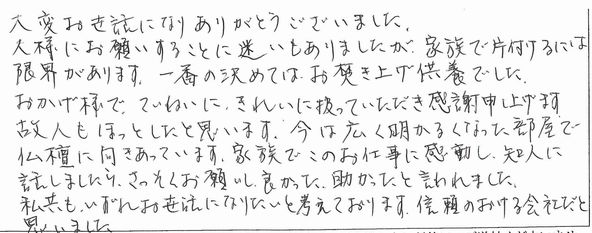 大変お世話になりありがとうございました。
人様にお願いすることに迷いもありましたが、家族で片付けるには
限界があります。一番の決めては、お焚き上げ供養でした。
おかげ様で、ていねいに、きれいに扱っていただき感謝申し上げます
故人もほっとしたと思います。今は広く明かるくなった部屋で
仏壇に向きあっています。家族でこのお仕事に感動し、知人に
話しましたら、さっそくお願いし良かった、助かったと言われました。
私共も、いずれお世話になりたいと考えております。信頼のおける会社だと
思いました